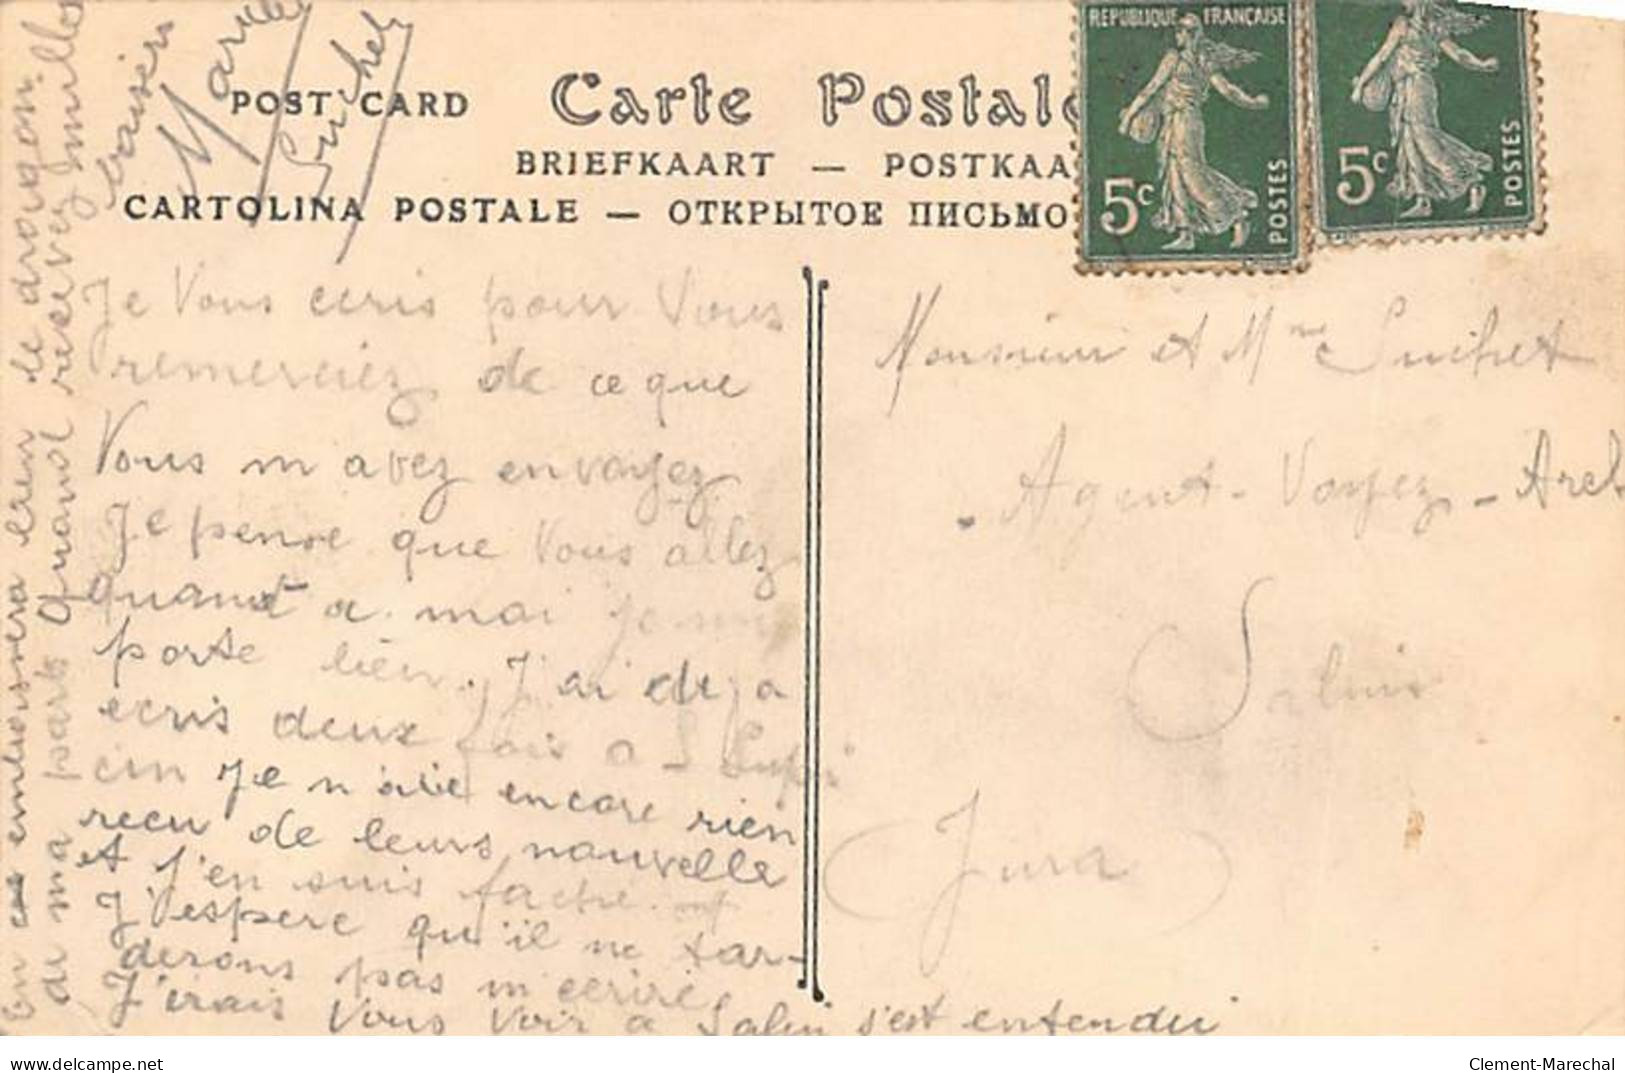 POST CARD
Carte Postale
BRIEFKAART — POSTKAA
CARTOLINA POSTALE — ОТКРЫТОЕ ПИСЬМО
REPUBLIQUE FRANÇAISE
5c POSTES
5c POSTES
Je Vous ecris pour Vous
remerciez de ce que
Vous m avez envoyez
Je pense que Vous allez
quant a moi Je me
porte bien. J'ai deja
ecris deux fois a
Je n'aie encore rien
recu de leurs nouvelle
et J'en suis fache
J'espere qu'il ne tar-
derons pas m'ecrire
J'irais Vous Voir a Salin s'est entendu
En embrassera bien le drougon
de ma part Quand recevez mille
baisers
Marcel
Suchet
Monsieur et Mme Suchet
Agent-Voyez-Arch
Salins
Jura
delcampe.net
Clement-Marechal